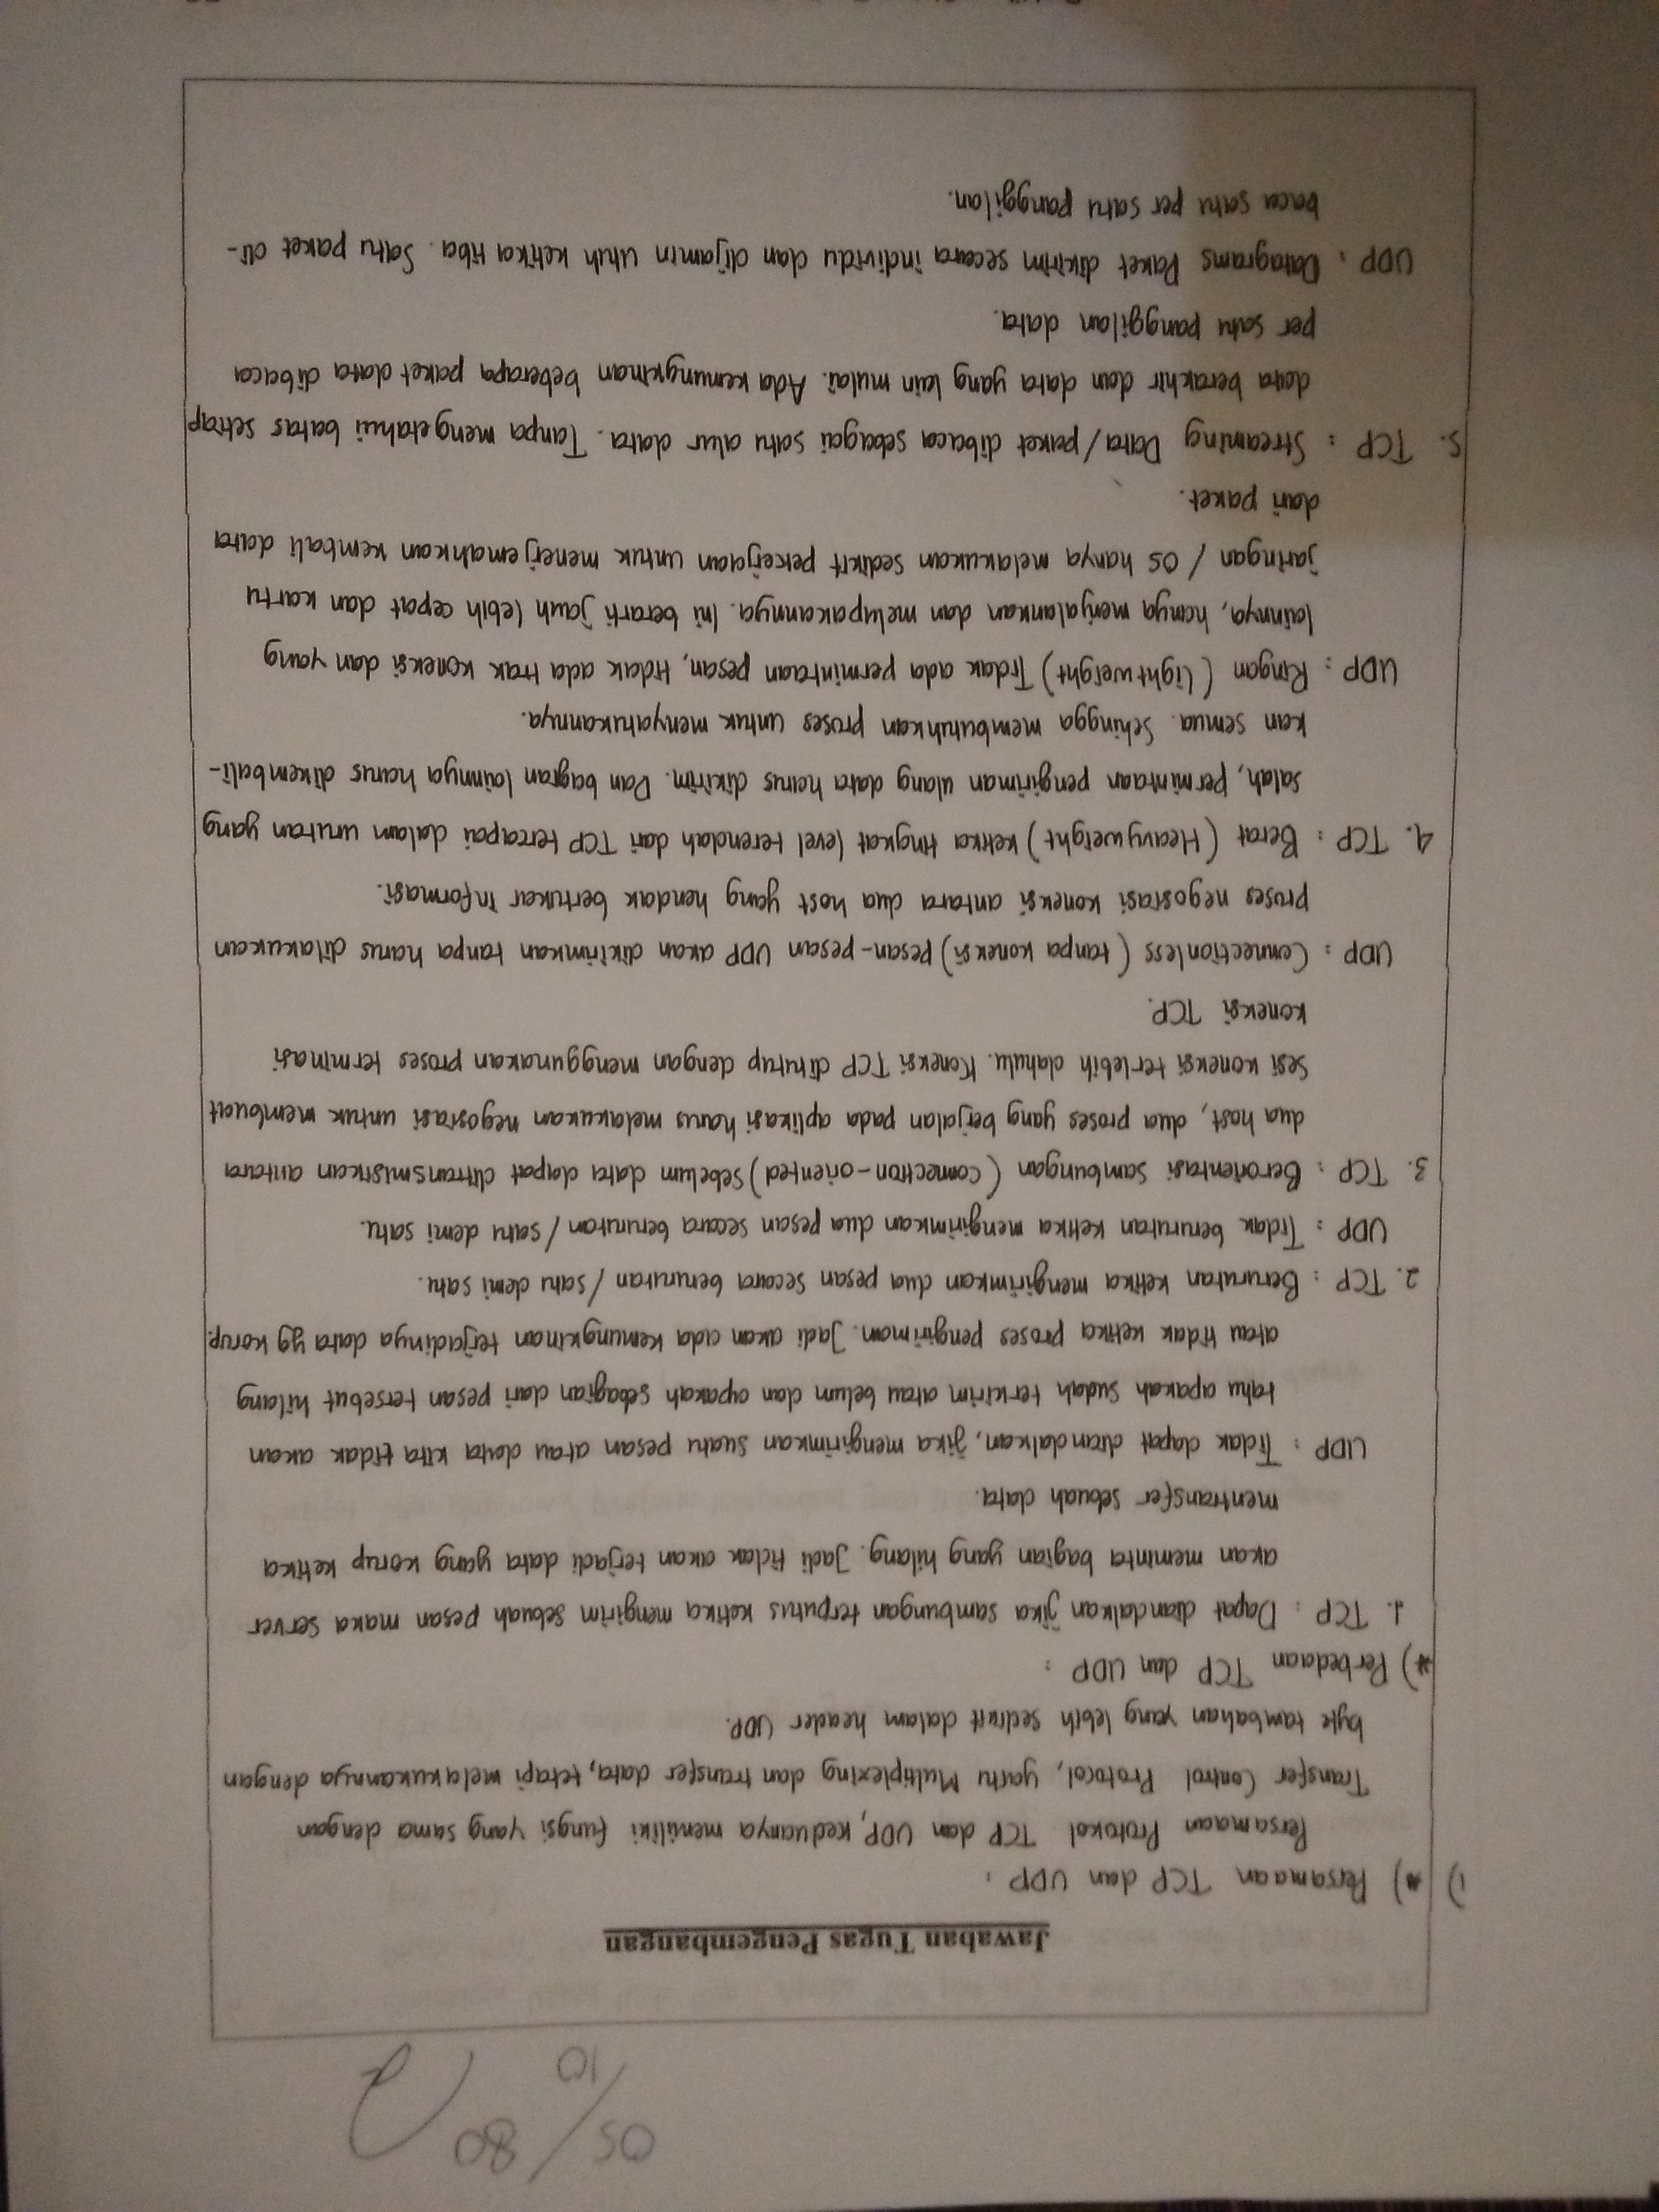 05/10 80
Jawaban Tugas Pengembangan
1) *) Persamaan TCP dan UDP :
Persamaan Protokol TCP dan UDP, keduanya memiliki fungsi yang sama dengan
Transfer Control Protocol, yaitu Multiplexing dan transfer data, tetapi melakukannya dengan
byte tambahan yang lebih sedikit dalam header UDP.
*) Perbedaan TCP dan UDP :
1. TCP : Dapat diandalkan jika sambungan terputus ketika mengirim sebuah pesan maka server
akan meminta bagian yang hilang. Jadi tidak akan terjadi data yang korup ketika
mentransfer sebuah data.
UDP : Tidak dapat diandalkan, jika mengirimkan suatu pesan atau data kita tidak akan
tahu apakah sudah terkirim atau belum dan apakah sebagian dari pesan tersebut hilang
atau tidak ketika proses pengiriman. Jadi akan ada kemungkinan terjadinya data yg korup.
2. TCP : Berurutan ketika mengirimkan dua pesan secara berurutan / satu demi satu.
UDP : Tidak berurutan ketika mengirimkan dua pesan secara berurutan / satu demi satu.
3. TCP : Berorientasi sambungan (connection-oriented) sebelum data dapat ditransmisikan antara
dua host, dua proses yang berjalan pada aplikasi harus melakukan negosiasi untuk membuat
sesi koneksi terlebih dahulu. Koneksi TCP ditutup dengan menggunakan proses terminasi
koneksi TCP.
UDP : Connectionless (tanpa koneksi) pesan-pesan UDP akan dikirimkan tanpa harus dilakukan
proses negosiasi koneksi antara dua host yang hendak bertukar informasi.
4. TCP : Berat (Heavyweight) ketika tingkat level terendah dari TCP tercapai dalam urutan yang
salah, permintaan pengiriman ulang data harus dikirim. Dan bagian lainnya harus dikembali-
kan semua. Sehingga membutuhkan proses untuk menyatukannya.
UDP : Ringan (lightweight) Tidak ada permintaan pesan, tidak ada trak koneksi dan yang
lainnya, hanya menjalankan dan melupakannya. Ini berarti jauh lebih cepat dan kartu
jaringan / OS hanya melakukan sedikit pekerjaan untuk menerjemahkan kembali data
dari paket.
5. TCP : Streaming Data/paket dibaca sebagai satu alur data. Tanpa mengetahui batas setiap
data berakhir dan data yang lain mulai. Ada kemungkinan beberapa paket data dibaca
per satu panggilan data.
UDP : Datagrams Paket dikirim secara individu dan dijamin utuh ketika tiba. Satu paket di-
baca satu per satu panggilan.